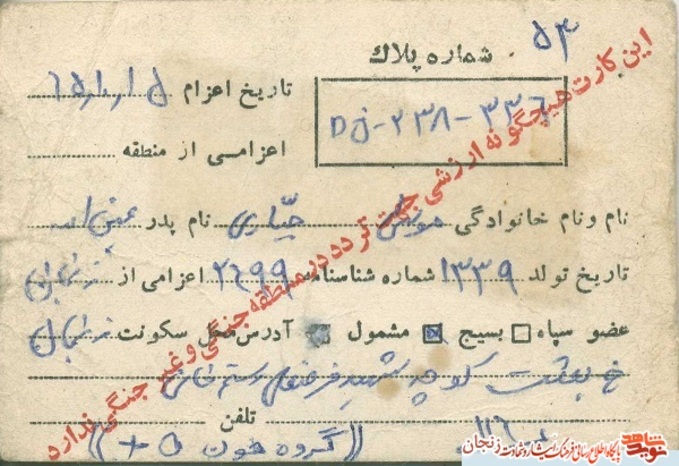 ۵۳
شماره پلاك
DJ-۲۳۸-۳۳۶
تاریخ اعزام ۶۵/۱/۱۵
اعزامی از منطقه
نام و نام خانوادگی نام پدر
تاریخ تولد ۱۳۳۹ شماره شناسنامه ۲۶۹۹ اعزامی از زنجان
عضو سپاه بسیج مشمول آدرس محل سکونت زنجان
خ بعثت کوچه شهید
تلفن
(( گروه خون O + ))
این کارت هیچگونه ارزشی جهت تردد در منطقه جنگی و غیر جنگی ندارد
نوید شاهد
پایگاه اطلاع رسانی فرهنگ ایثار و شهادت زنجان